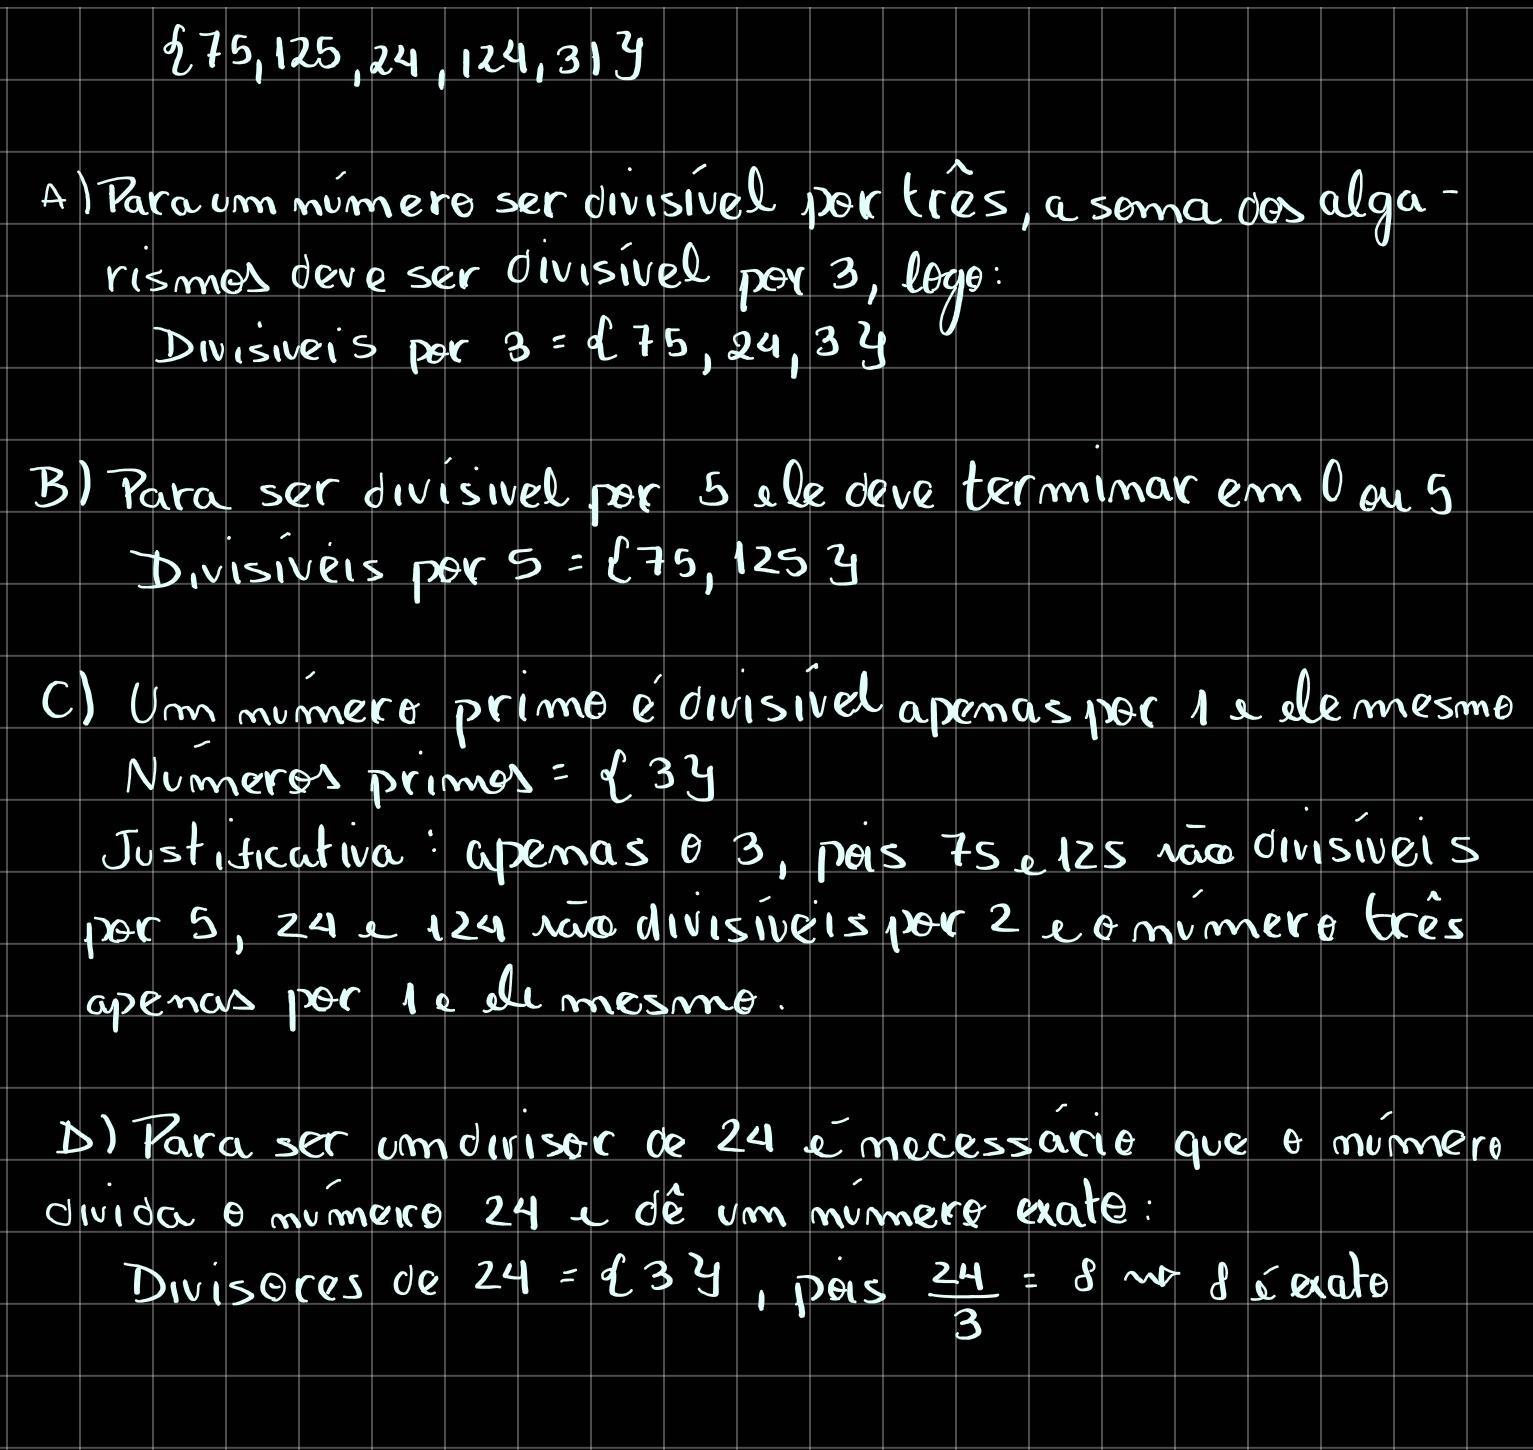 {75,125,24,124,31}
A) Para um número ser divisível por três, a soma dos alga-
rismos deve ser divisível por 3, logo:
Divisiveis por 3 = {75, 24, 3}
B) Para ser divísivel por 5 ele deve terminar em 0 ou 5
Divisíveis por 5 = {75, 125}
C) Um número primo é divisível apenas por 1 e ele mesmo
Números primos = {3}
Justificativa: apenas o 3, pois 75 e 125 são divisíveis
por 5, 24 e 124 são divisíveis por 2 e o número três
apenas por 1 e ele mesmo.
D) Para ser um divisor de 24 é necessário que o número
divida o número 24 e dê um número exato:
Divisores de 24 = {3}, pois 24/3 = 8 → 8 é exato